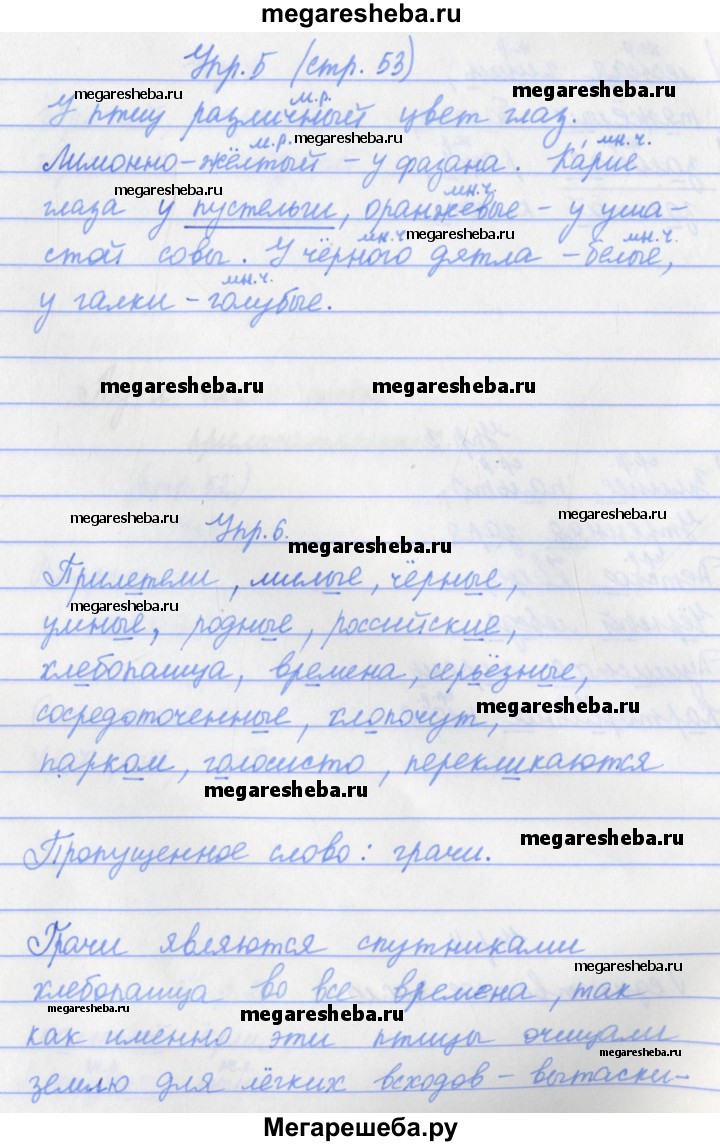 megaresheba.ru
Упр. 5 (стр. 53)
megaresheba.ru
megaresheba.ru
м.р.
У птиц различный цвет глаз.
м.р. megaresheba.ru мн.ч.
Лимонно-жёлтый – у фазана. Карие
megaresheba.ru мн.ч.
глаза у пустельги, оранжевые – у уша-
мн.ч. megaresheba.ru мн.ч.
стой совы. У чёрного дятла – белые,
мн.ч.
у галки – голубые.
megaresheba.ru megaresheba.ru
megaresheba.ru Упр. 6. megaresheba.ru
megaresheba.ru
Прилетели, милые, чёрные,
megaresheba.ru
умные, родные, российские,
хлебопашца, времена, серьёзные,
megaresheba.ru
сосредоточенные, хлопочут,
парком, голосисто, перекликаются
megaresheba.ru
megaresheba.ru
Пропущенное слово: грачи.
Грачи являются спутниками
megaresheba.ru
хлебопашца во все времена, так
megaresheba.ru megaresheba.ru
как именно эти птицы очищали
megaresheba.ru
землю для лёгких всходов – вытаски-
Мегарешеба.ру